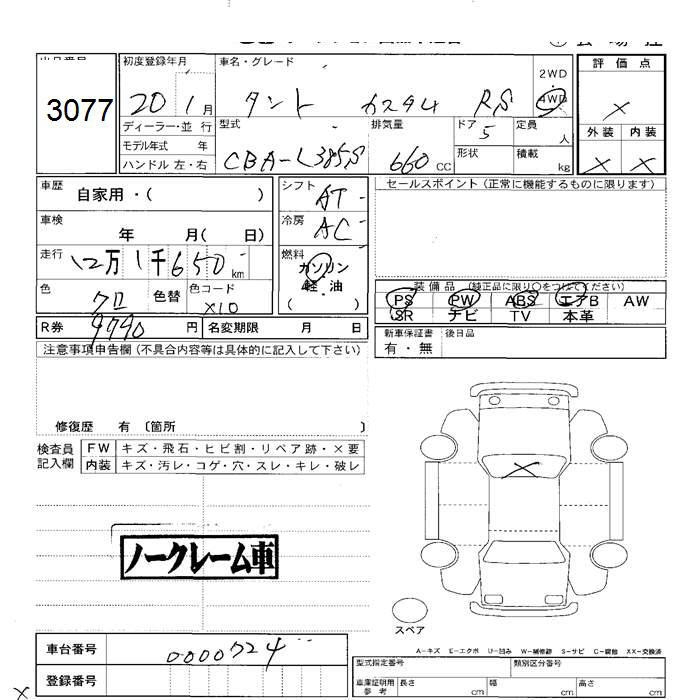 3077
初度登録年月 車名・グレード
20 1月 タント カスタム RS
2WD
4WD
評価点
×
外装 内装
× ×
ディーラー・並行
モデル年式 年
ハンドル 左・右
型式 排気量 ドア 定員
CBA-L385S 660 CC 5 人
形状 積載
kg
車歴 自家用・( )
シフト AT
セールスポイント (正常に機能するものに限ります)
車検 年 月( 日)
冷房 AC
走行 12万1千650km
燃料
ガソリン
軽・油
( )
色 クロ 色替 色コード X10
装備品 (純正品に限り○をつけてください)
PS PW ABS エアB AW
SR ナビ TV 本革
R券 9790 円 名変期限 月 日
新車保証書 後日品
有・無
注意事項申告欄(不具合内容等は具体的に記入して下さい)
修復歴 有 〔箇所 〕
検査員
記入欄
FW キズ・飛石・ヒビ割・リペア跡・×要
内装 キズ・汚レ・コゲ・穴・スレ・キレ・破レ
×
ノークレーム車
スペア
A-キズ E-エクボ U-凹み W-補修跡 S-サビ C-腐蝕 XX-交換済
車台番号 0000724
登録番号
型式指定番号 類別区分番号
車庫証明用
参考
長さ cm 幅 cm 高さ cm
×